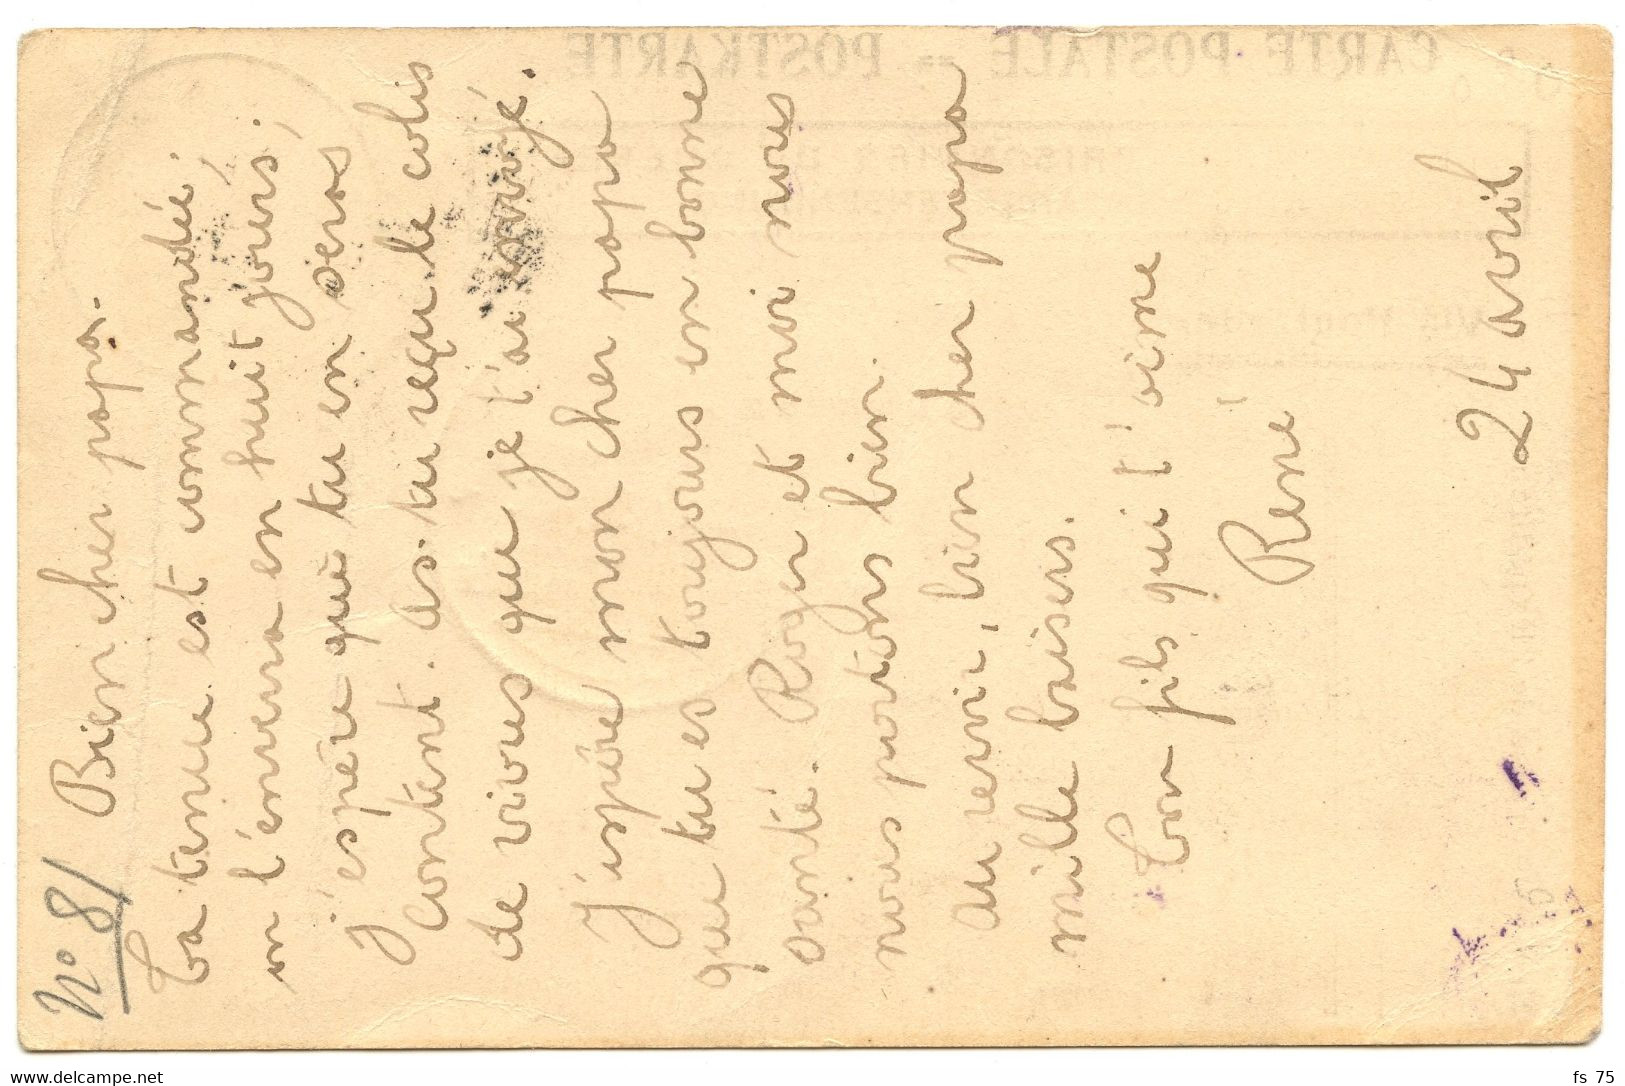 N° 81
Bien cher papa.
Ta tenue est commandée,
on l'envera en huit jours,
j'espère que tu en seras
content. As-tu reçu le colis
de vivres que je t'ai envoyé.
J'espère mon cher papa
que tu es toujours en bonne
santé. Roger et moi nous
nous portons bien.
Au revoir, bien cher papa
mille baisers.
Ton fils qui t'aime
René
24 avril
CARTE POSTALE -- POSTKARTE
www.delcampe.net
fs 75